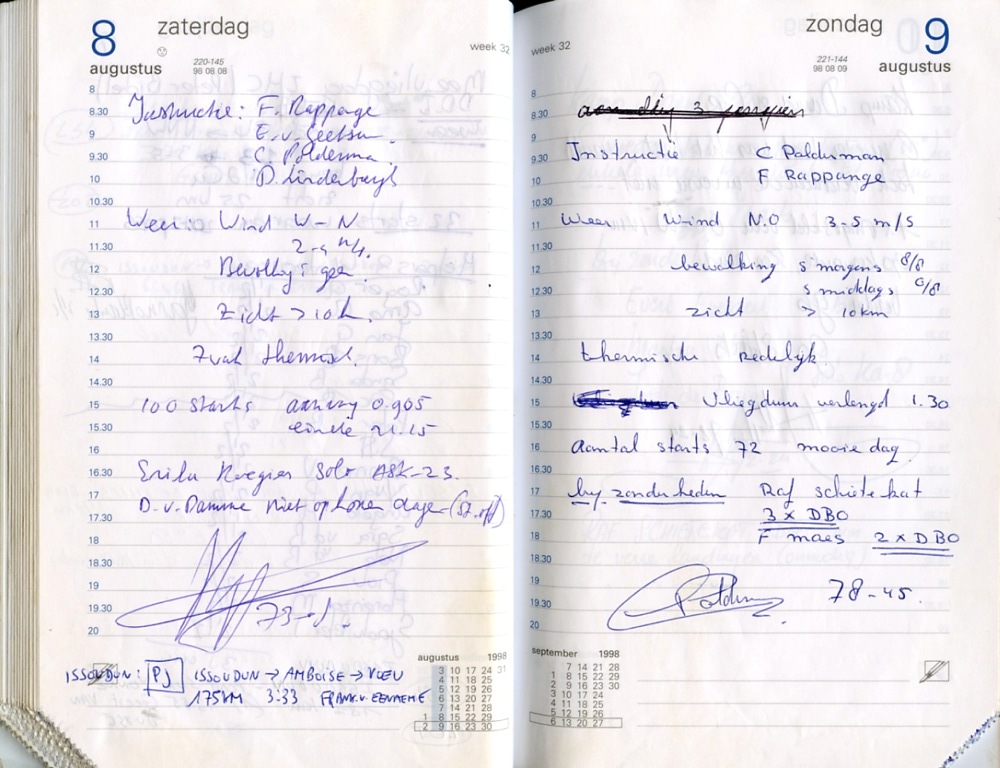 8 zaterdag
augustus
220-145
98 08 08
week 32
8
8.30 Instructie: F. Rappage
9 E. v.
9.30 C. Polderma.
10 D. Linderbergh
10.30
11 Weer: Wind W - N
11.30 2-4 m/s.
12 Bevolky: geen
12.30
13 Zicht > 10 k.
13.30
14 Zwak thermisch.
14.30
15 100 Starts aanvang 0.905
15.30 einde 21.15
16
16.30 Solo ASK-23.
17 D. v. Damme niet op komen dagen (St. off)
17.30
18
18.30
19
19.30 73-
20
ISSOUDUN: PJ ISSOUDUN → AMBOISE → VUEU
175KM 3:33 FRANK.V.EENAEME
augustus 1998
3 10 17 24 31
4 11 18 25
5 12 19 26
6 13 20 27
7 14 21 28
1 8 15 22 29
2 9 16 23 30
zondag 9
week 32
221-144
98 08 09
augustus
8
8.30
9
9.30 Instructie C Palderman
10 F Rappange
10.30
11 Weer Wind N.O 3-5 m/s
11.30
12 bewolking s'morgens 8/8
12.30 s'middags 0/8
13 zicht > 10km
13.30
14 thermische redelijk
14.30
15 Vliegduur verlengd 1.30
15.30
16 Aantal starts 72 mooie dag.
16.30
17 byzonderheden Raf schietekat
17.30 3 x DBO
18 F maes 2 x DBO
18.30
19 78-45.
19.30
20
september 1998
7 14 21 28
1 8 15 22 29
2 9 16 23 30
3 10 17 24
4 11 18 25
5 12 19 26
6 13 20 27